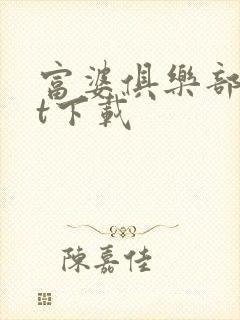 富婆俱樂部
t下載
陳嘉佳